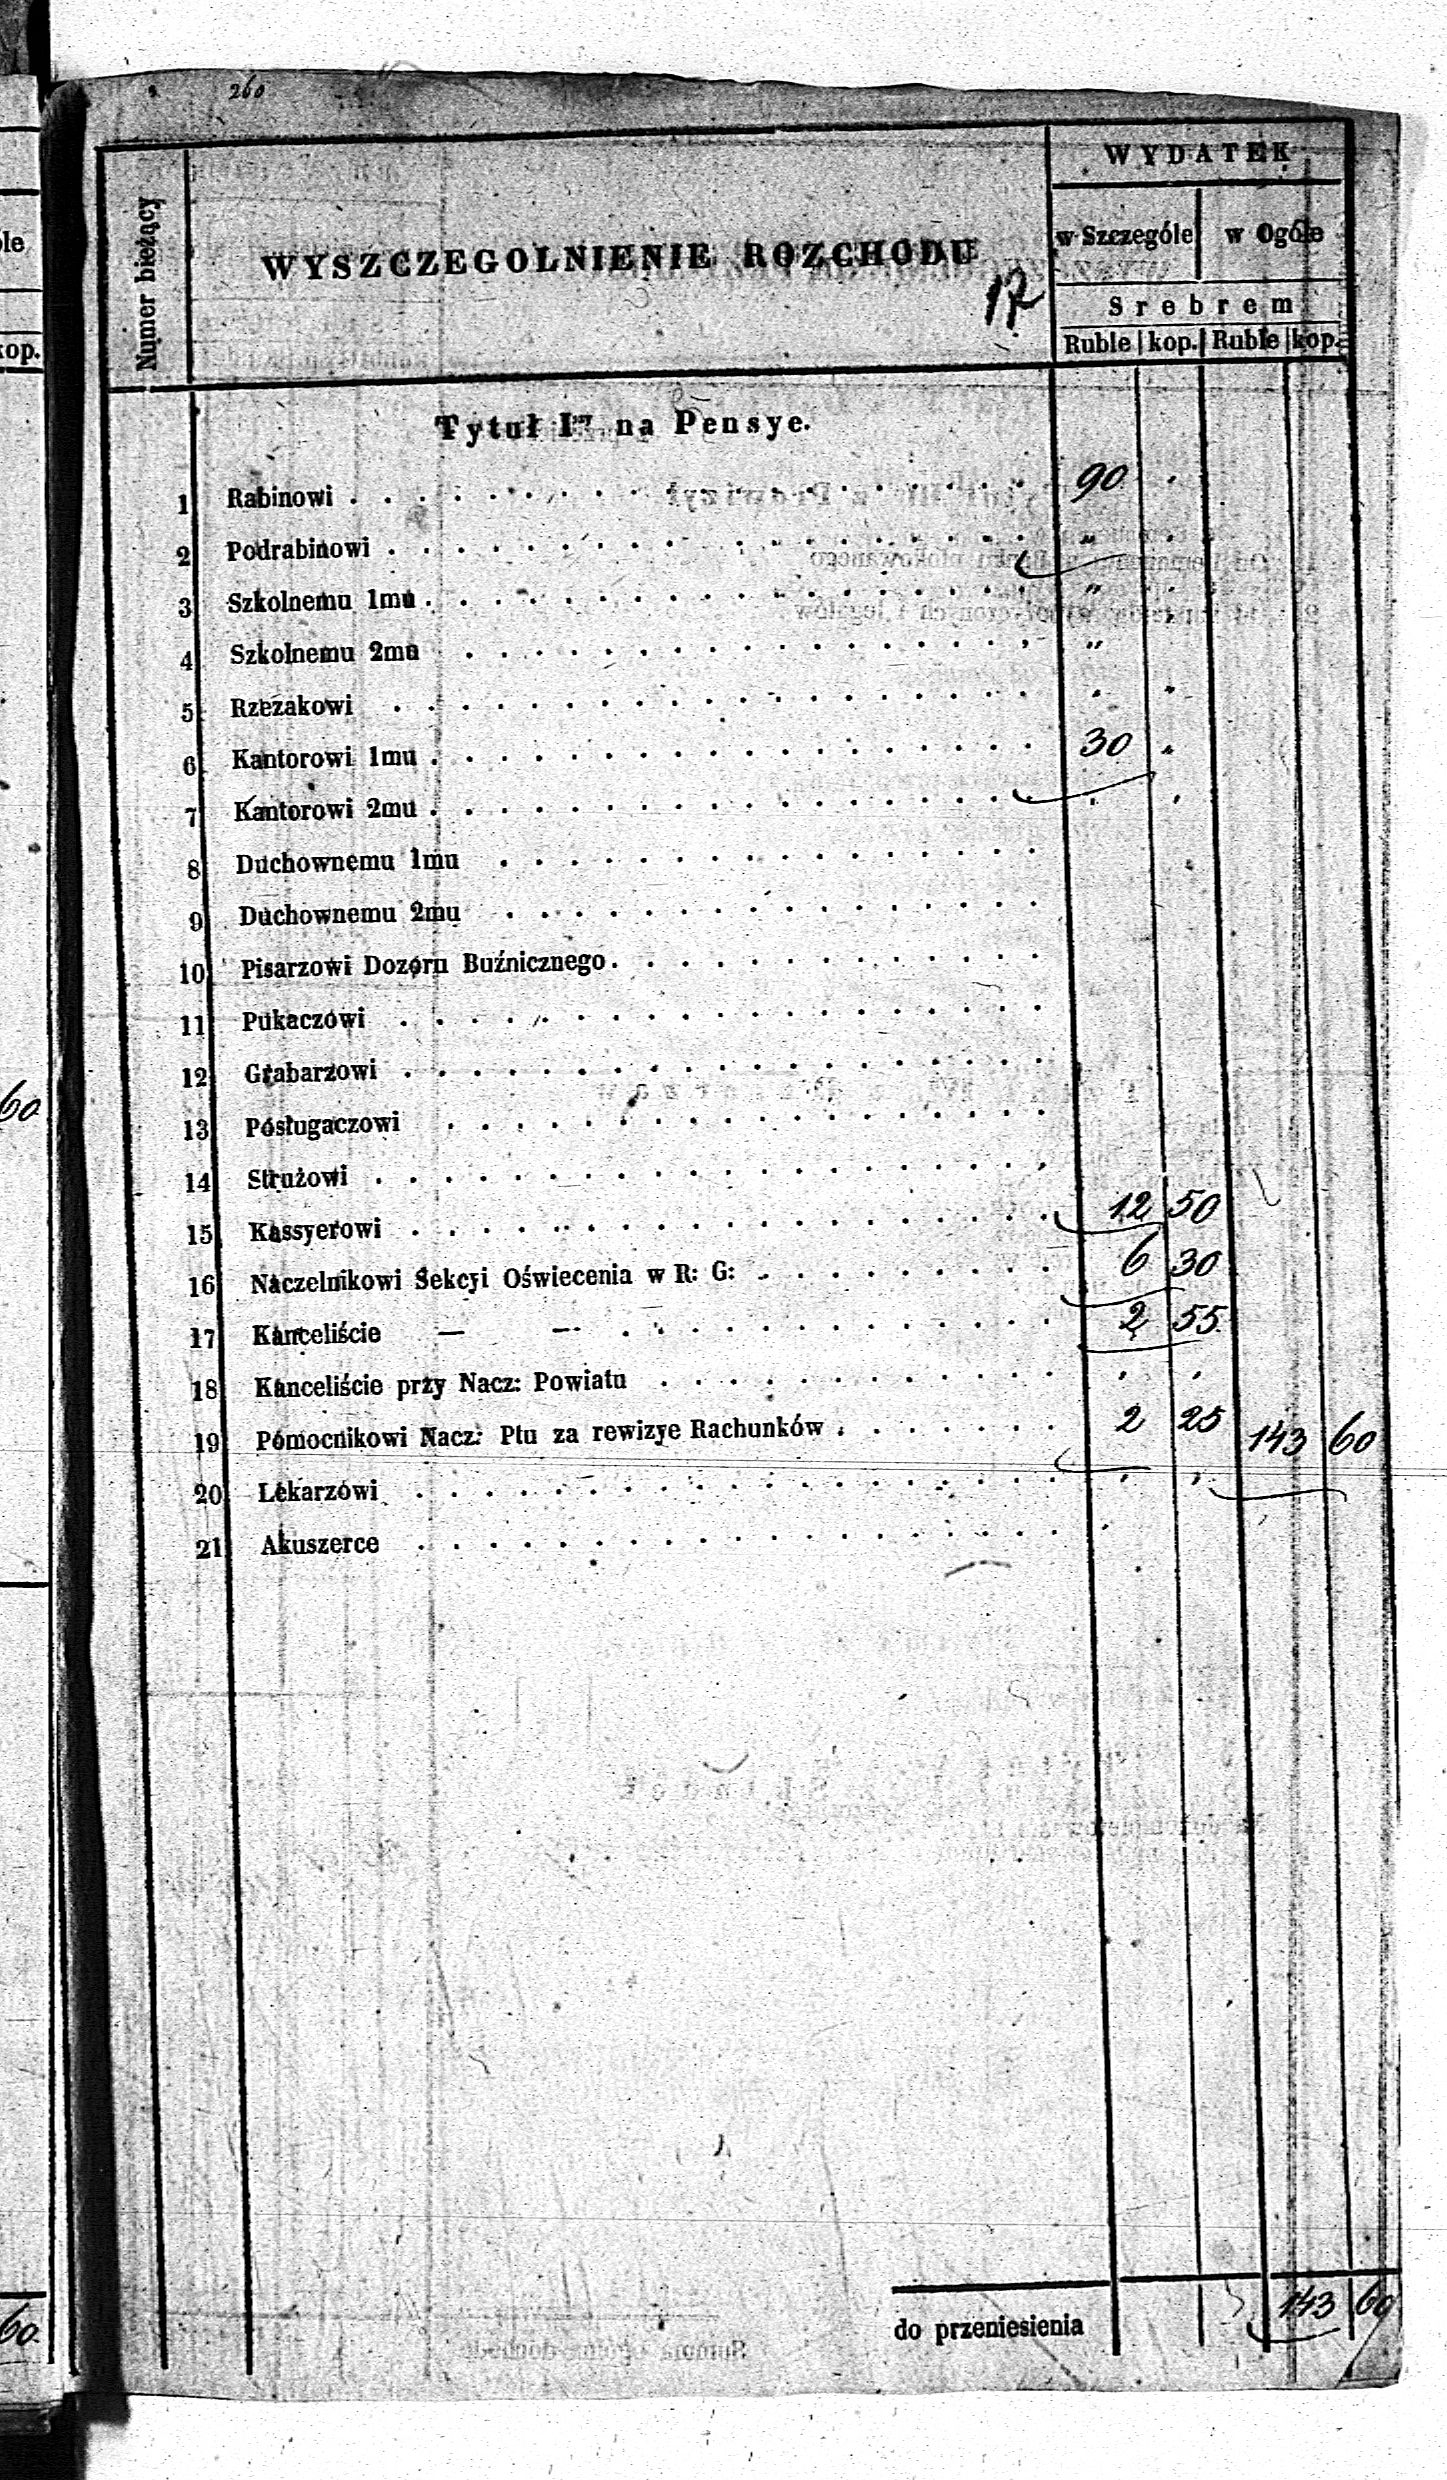 260
WYDATEK
Numer bieżący
WYSZCZEGOLNIENIE ROZCHODU
w Szczególe w Ogóle
17
Srebrem
Ruble kop. Ruble kop.
Tytuł I na Pensye.
1 Rabinowi . . . 90 "
2 Podrabinowi . . . "
3 Szkolnemu 1mu . . . "
4 Szkolnemu 2mu . . . "
5 Rzezakowi . . . " "
6 Kantorowi 1mu . . . 30 "
7 Kantorowi 2mu . . . " "
8 Duchownemu 1mu . . .
9 Duchownemu 2mu . . .
10 Pisarzowi Dozoru Buźnicznego . . .
11 Pukaczowi . . .
12 Grabarzowi . . .
13 Posługaczowi . . .
14 Strużowi . . .
15 Kassyerowi . . . 12 50
16 Naczelnikowi Sekcyi Oświecenia w R: G: . . . 6 30
17 Kanceliście — — . . . 2 55
18 Kanceliście przy Nacz: Powiatu . . . " "
19 Pomocnikowi Nacz: Ptu za rewizye Rachunków . . . 2 25 143 60
20 Lekarzowi . . . " "
21 Akuszerce . . .
do przeniesienia 143 60
le
kop.
60
60